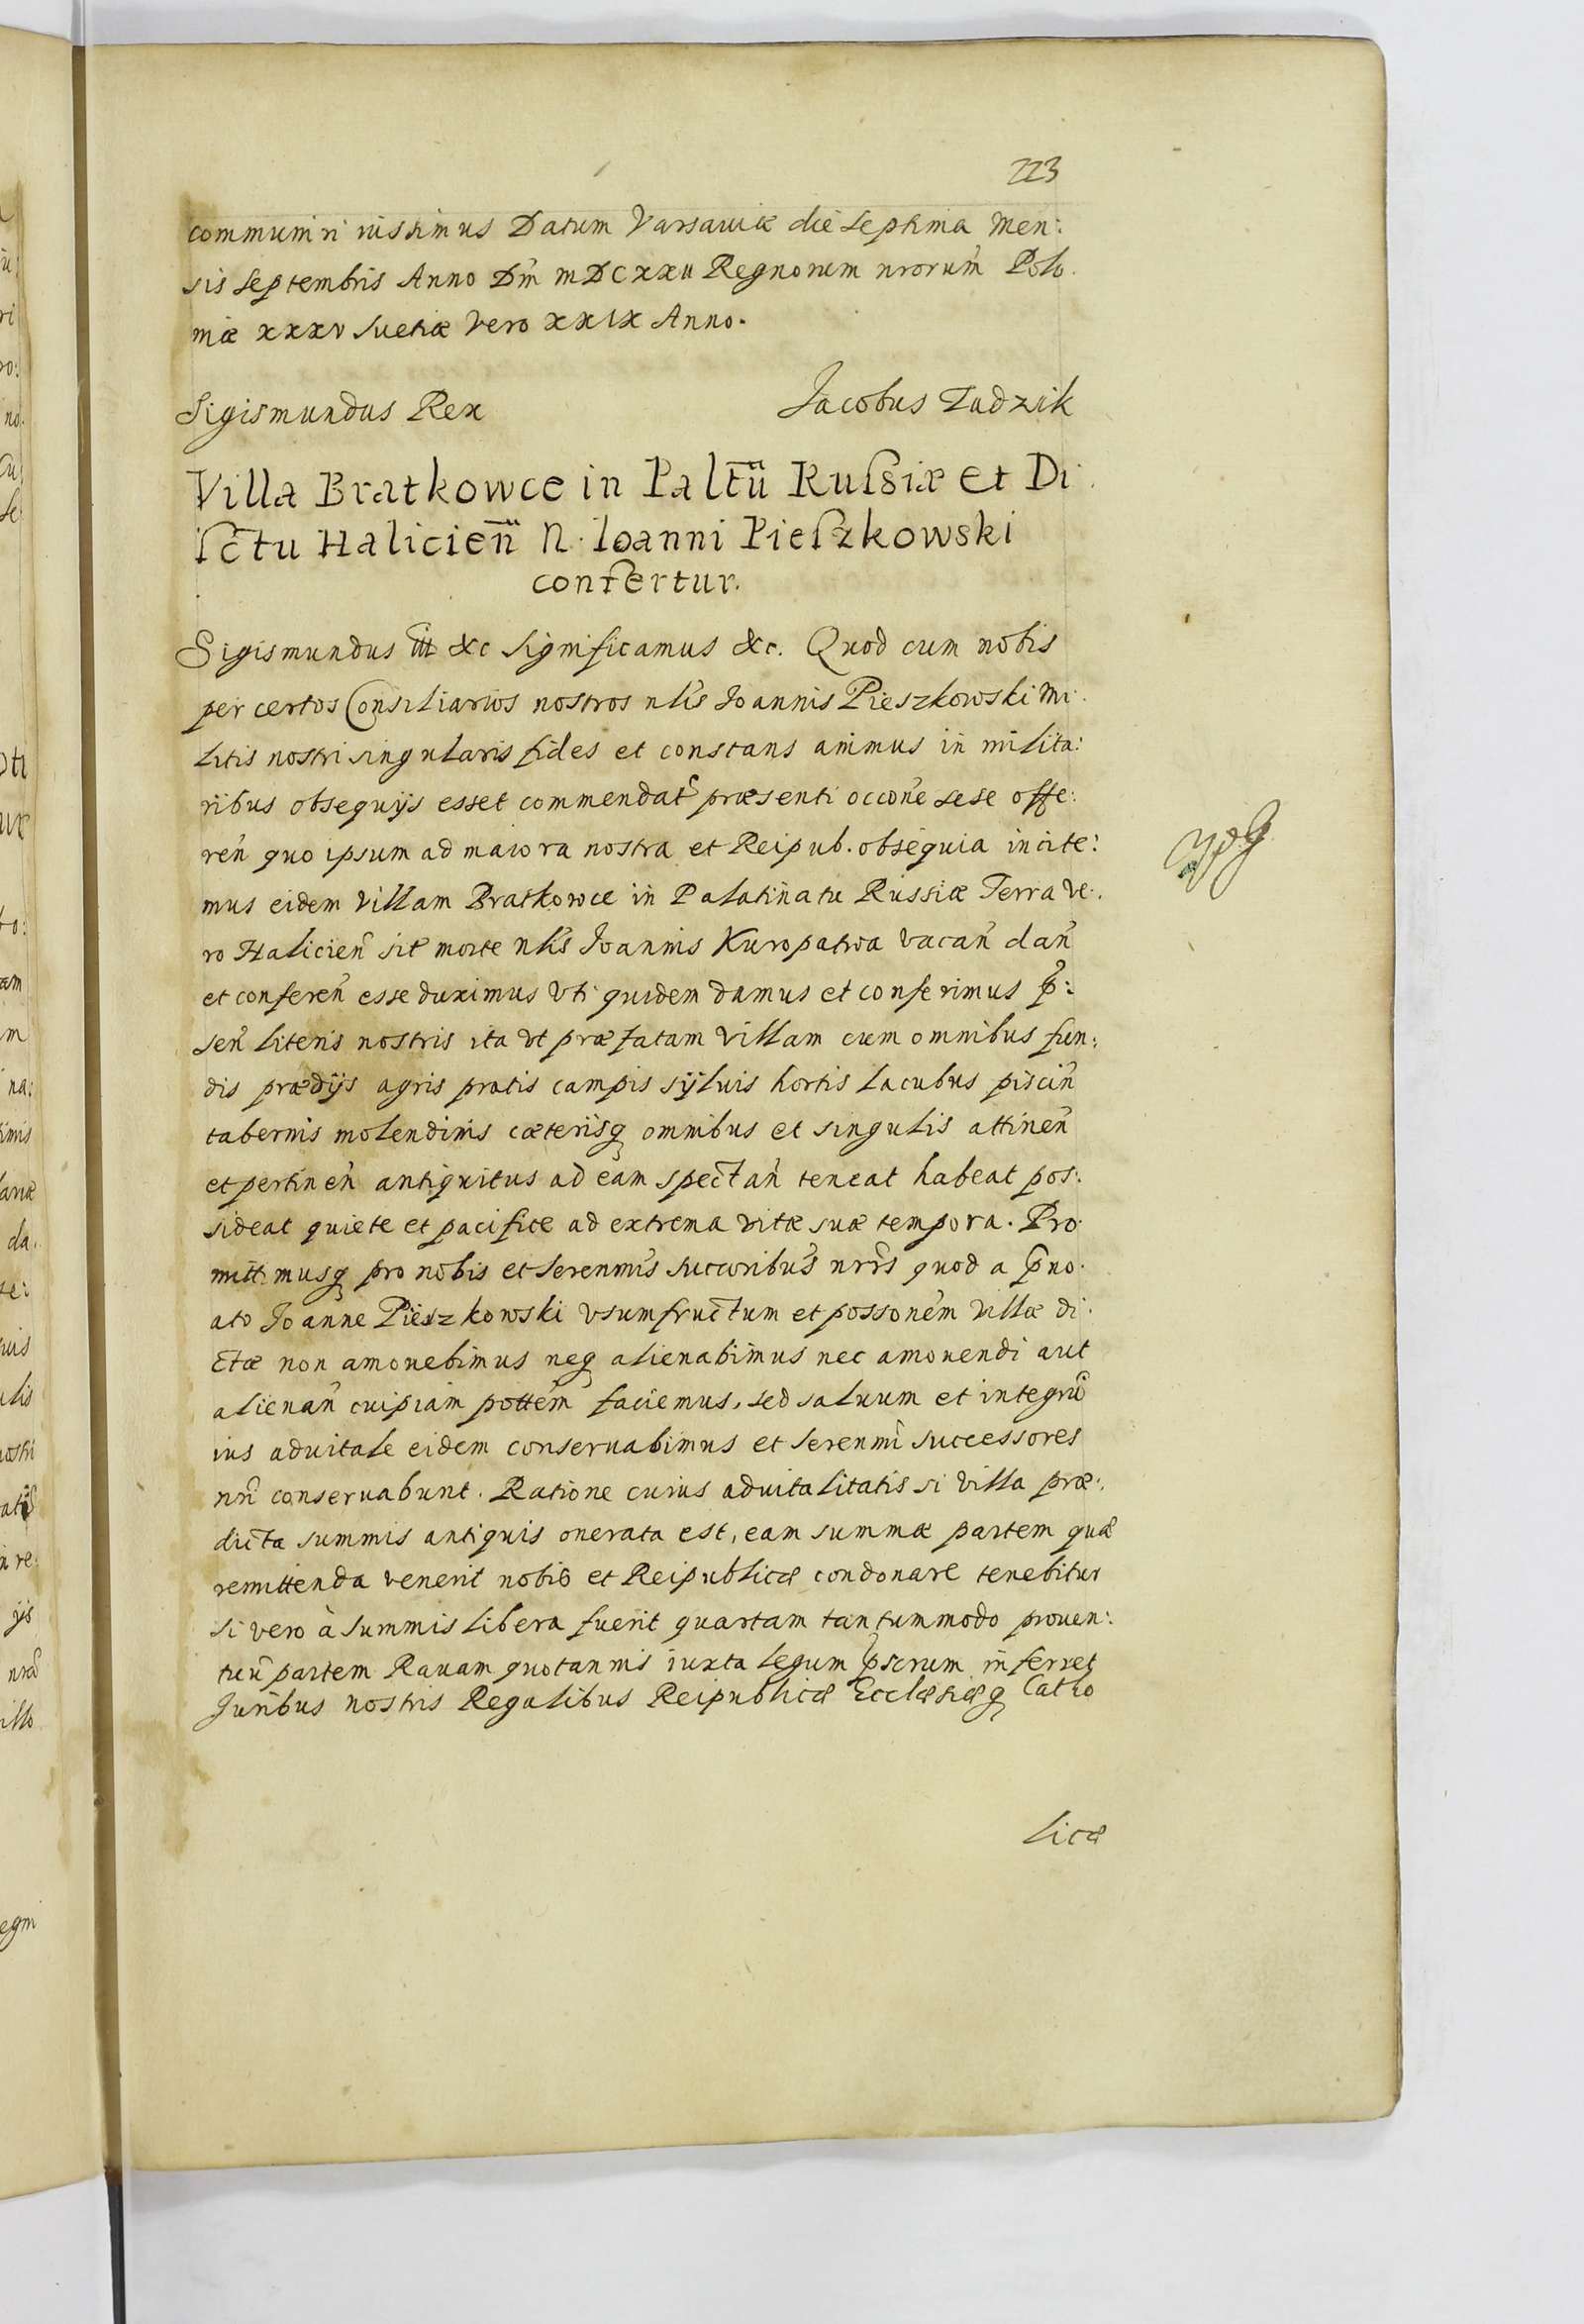 223
communiri iussimus Datum Varsauiæ die septima Men:
sis septembris Anno Dm̃ MDCXXII Regnorum nrorum̃ Polo
niæ xxxv suetiæ vero xxıx Anno.
Sigismundus Rex Jacobus Zadzik
Villa Bratkowce in Paltũ Rußiæ et Di
ſctu Halicieñ N. Ioanni Pieſzkowski
confertur.
Sigismundus III &c Significamus &c. Quod cum nobis
per certos Consiliarios nostros nlis̃ Joannis Pieszkowski Mi
litis nostri singularis fides et constans animus in milita:
ribus obsequijs esset commendat præsenti occone sese offe:
reñ quo ipsum ad maiora nostra et Reipub. obsequia incite:
mus eidem villam Bratkowce in Palatinatu Russiæ Terra ve
ro Halicieñ sit̃ morte nlis̃ Joannis Kuropatwa vacañ dañ
et confereñ esse duximus vti quidem damus et conferimus p̃:
señ literis nostris ita vt præfatam villam cum omnibus fun:
dis prædijs agris pratis campis syluis hortis lacubus pisciñ
tabernis molendinis cæterisq omnibus et singulis attineñ
et pertineñ antiquitus ad eam spectañ teneat habeat pos:
sideat quiete et pacifice ad extrema vitæ suæ tempora. Pro
mittimusq pro nobis et serenmis̃ succoribus̃ nrĩs quod a p̃no
ato Joanne Pieszkowski vsumfructum et possonem̃ villæ di
ctæ non amouebimus neq alienabimus nec amouendi aut
alienañ cuipiam pottem̃ faciemus, sed saluum et integrũ
ius aduitale eidem conseruabimus et serenmĩ successores
nrĩ conseruabunt. Ratione cuius aduitalitatis si villa præ:
dicta summis antiquis onerata est, eam summæ partem quæ
remittenda venerit nobis et Reipublicæ condonare tenebitur
si vero à summis libera fuerit quartam tantummodo prouen:
tuũ partem Rauam quotannis iuxta legum p̃scrum inferret
Juribus nostris Regalibus Reipublicæ Ecclesiæq Catho
licæ